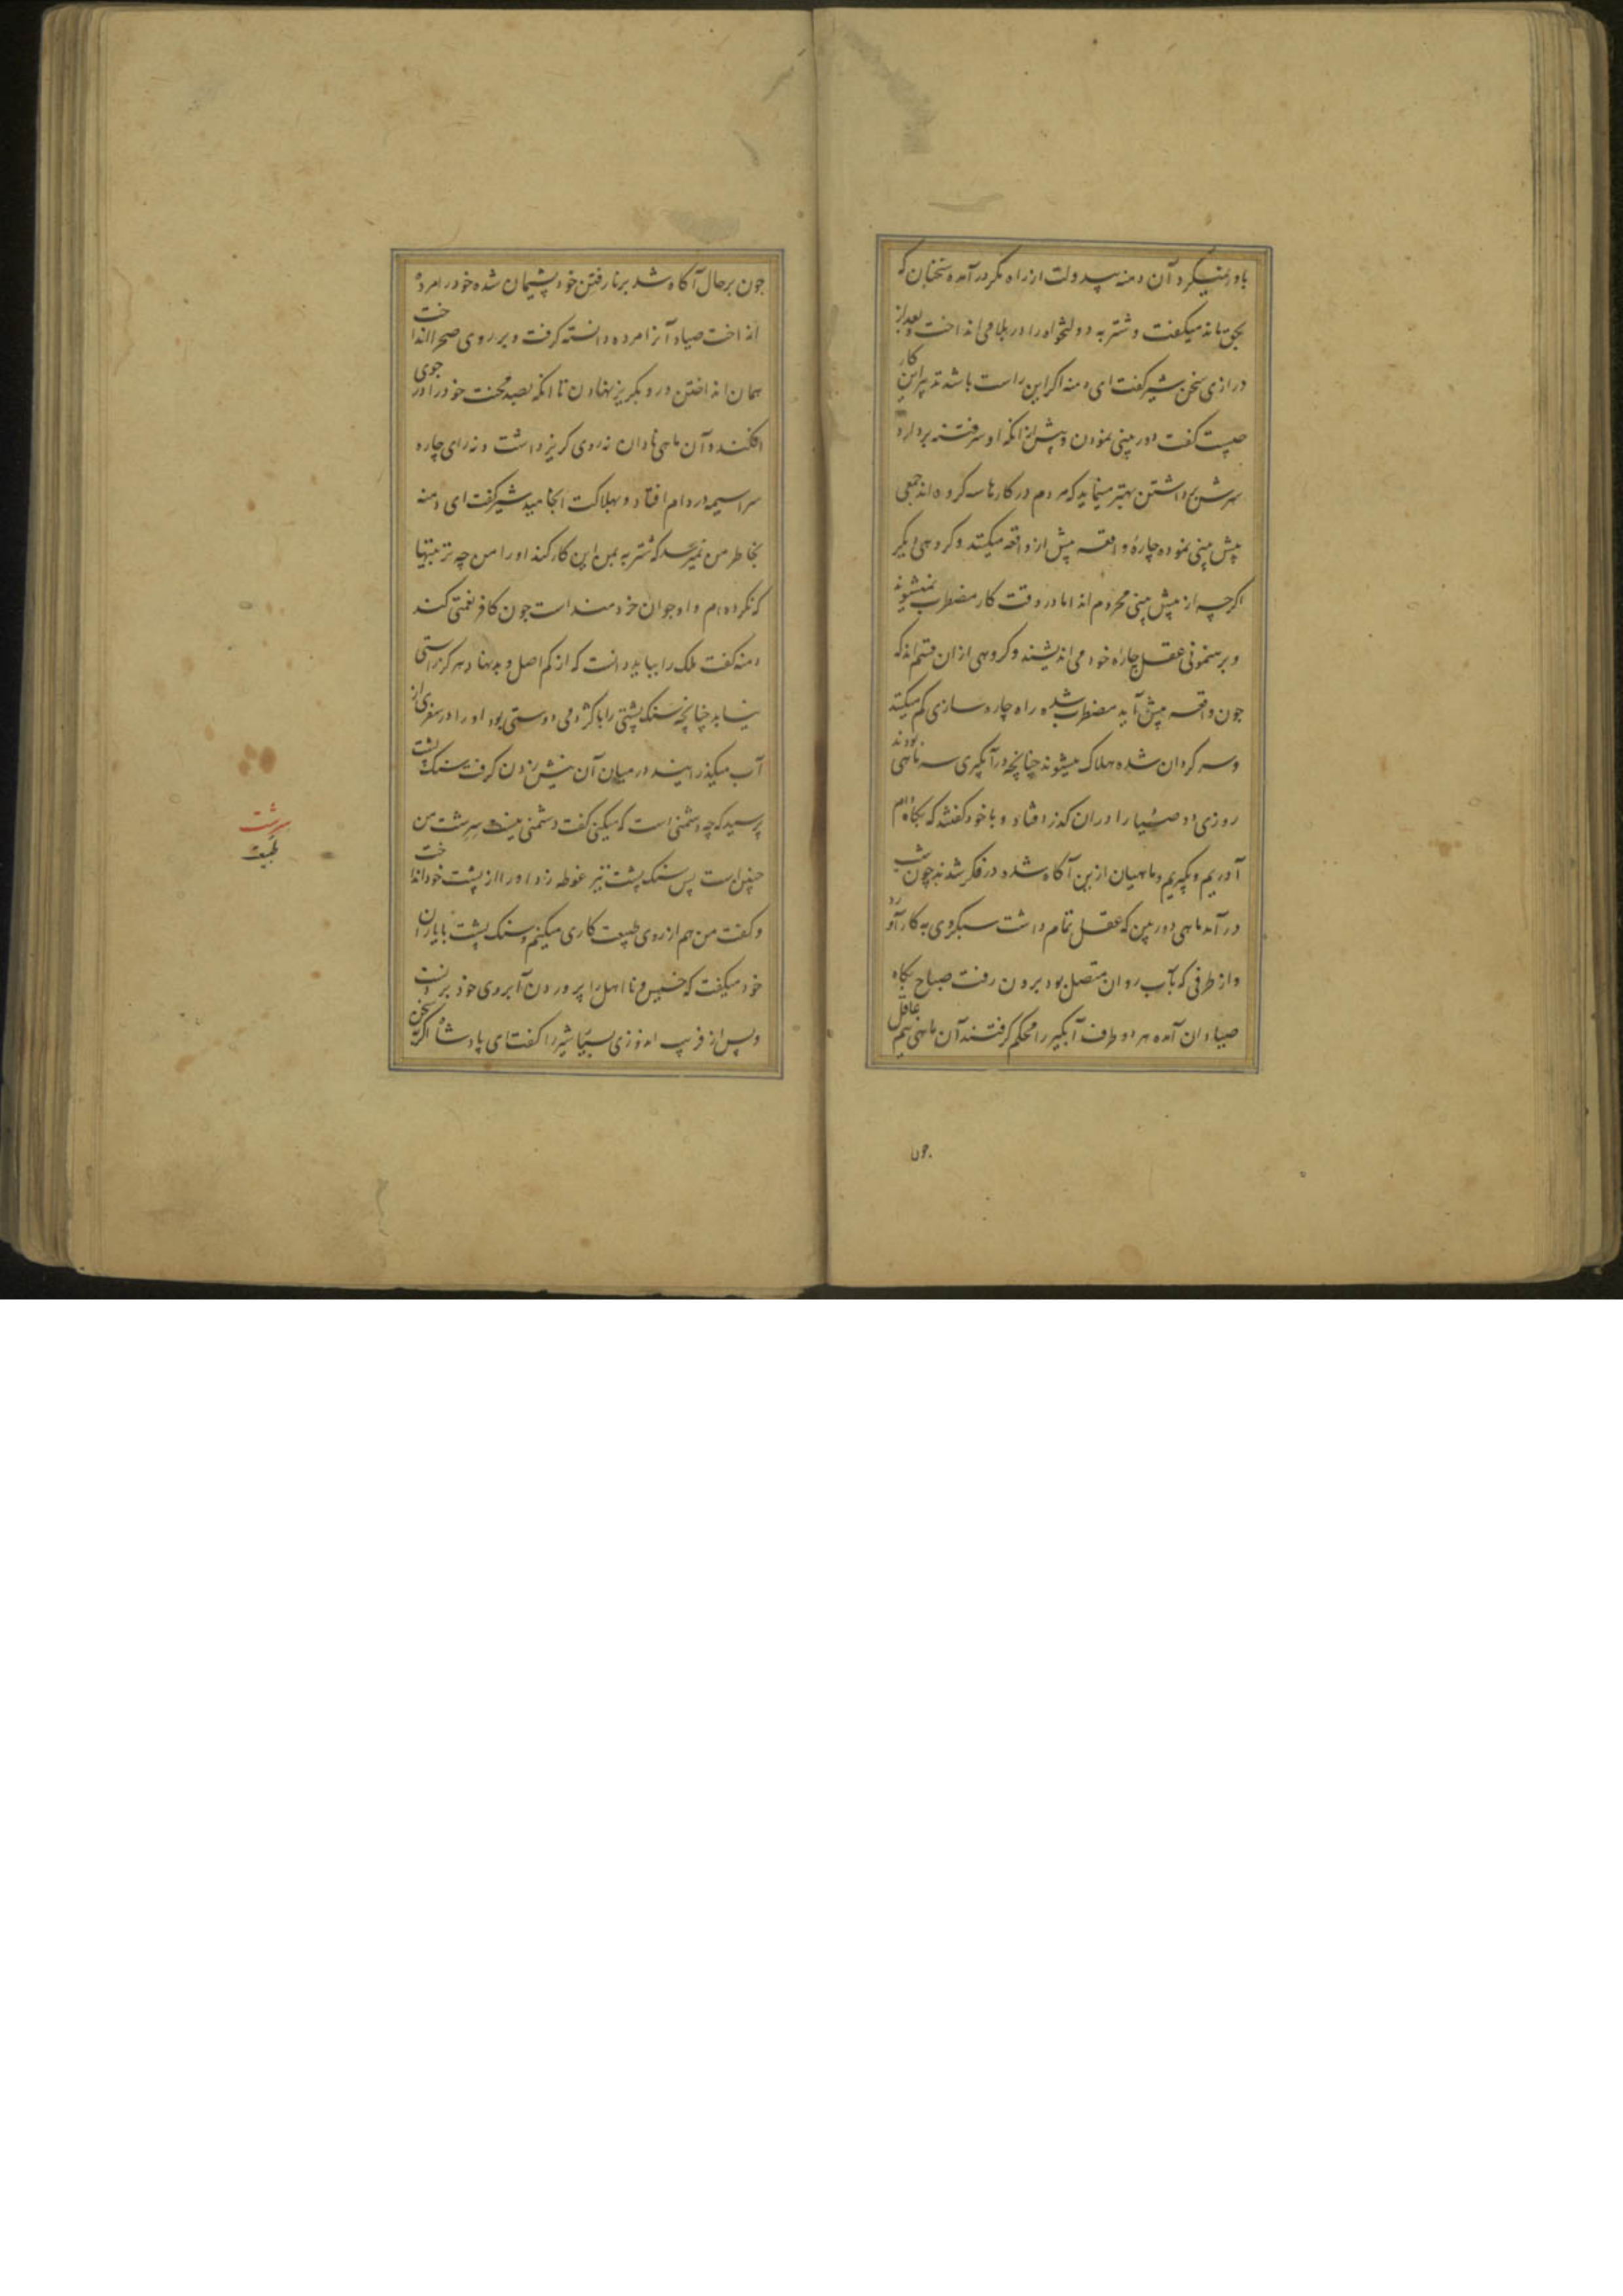 باور نمیکرد آن دمنه بیدولت از راه مکر درآمده سخنان که
بحق ماند میکفت و شنزبه دولتخواه را در بلا می انداخت و بعد از
درازی سخن شیر کفت ای دمنه اکر این راست باشد تدبیر این کار
چیست کفت دوربینی نمودن و پیش از انکه او سر فتنه بردارد
سرش برداشتن بهتر مینماید که مردم در کارها سه کروه اند جمعی
پیش بینی نموده چارهٔ واقعه پیش از واقعه میکنند و کروهی دیکر
اکرچه از پیش بینی محروم اند اما در وقت کار مضطرب نمیشوند
و برهنمونی عقل چاره خود می اندیشند و کروهی ازان قسم اند که
چون واقعه پیش آید مضطرب شده راه چاره سازی کم میکنند
و سر کردان شده هلاک میشوند چنانچه در آبکیری سه ماهی بودند
روزی دو صیاد را دران کذر افتاد و با خود کفتند که پکاه دام
آوریم و بکیریم و ماهیان ازین آکاه شده در فکر شدند چون شب
درآمد ماهی دوربین که عقل تمام داشت سبکروی به کار آورد
و از طرفی که بآب روان متصل بود برون رفت صباح پکاه
صیادان آمده هر دو طرف آبکیر را محکم کرفتند آن ماهی نیم عاقل
چون
چون بر حال آکاه شد بر نارفتن خود پشیمان شده خود را مرده
انداخت صیاد آنرا مرده دانسته کرفت و بر روی صحرا انداخت
همان انداختن در و بکریز نهادن تا انکه بصد محنت خود را در جوی
افکند و آن ماهی نادان نه روی کریز داشت و نه رای چاره
سراسیمه در دام افتاد و بهلاکت انجامید شیر کفت ای دمنه
بخاطر من نمیرسد که شنزبه بمن این کار کند او را من چه تربیتها
که نکرده ام و او جوان خردمند است چون کافر نعمتی کند
دمنه کفت ملک را بباید دانست که از کم اصل و بد نهاد هرکز راستی
نیاید چنانچه سنک پشتی را با کژدمی دوستی بود او را در سفری از
آب میکذرانید در میان آن نیش زدن کرفت سنک پشت
پرسید که چه دشمنی است که میکنی کفت دشمنی نیست سرشت من
چنین است پس سنک پشت نیز غوطه زد او را از پشت خود انداخت
و کفت من هم از روی طبیعت کاری میکنم و سنک پشت با یاران
خود میکفت که خسیس و نا اهل را پروردن آبروی خود بردنست
و پس از فریب اندوزی بسیار شیر را کفت ای پادشاه اکر سخن
سرشت
طبیعت